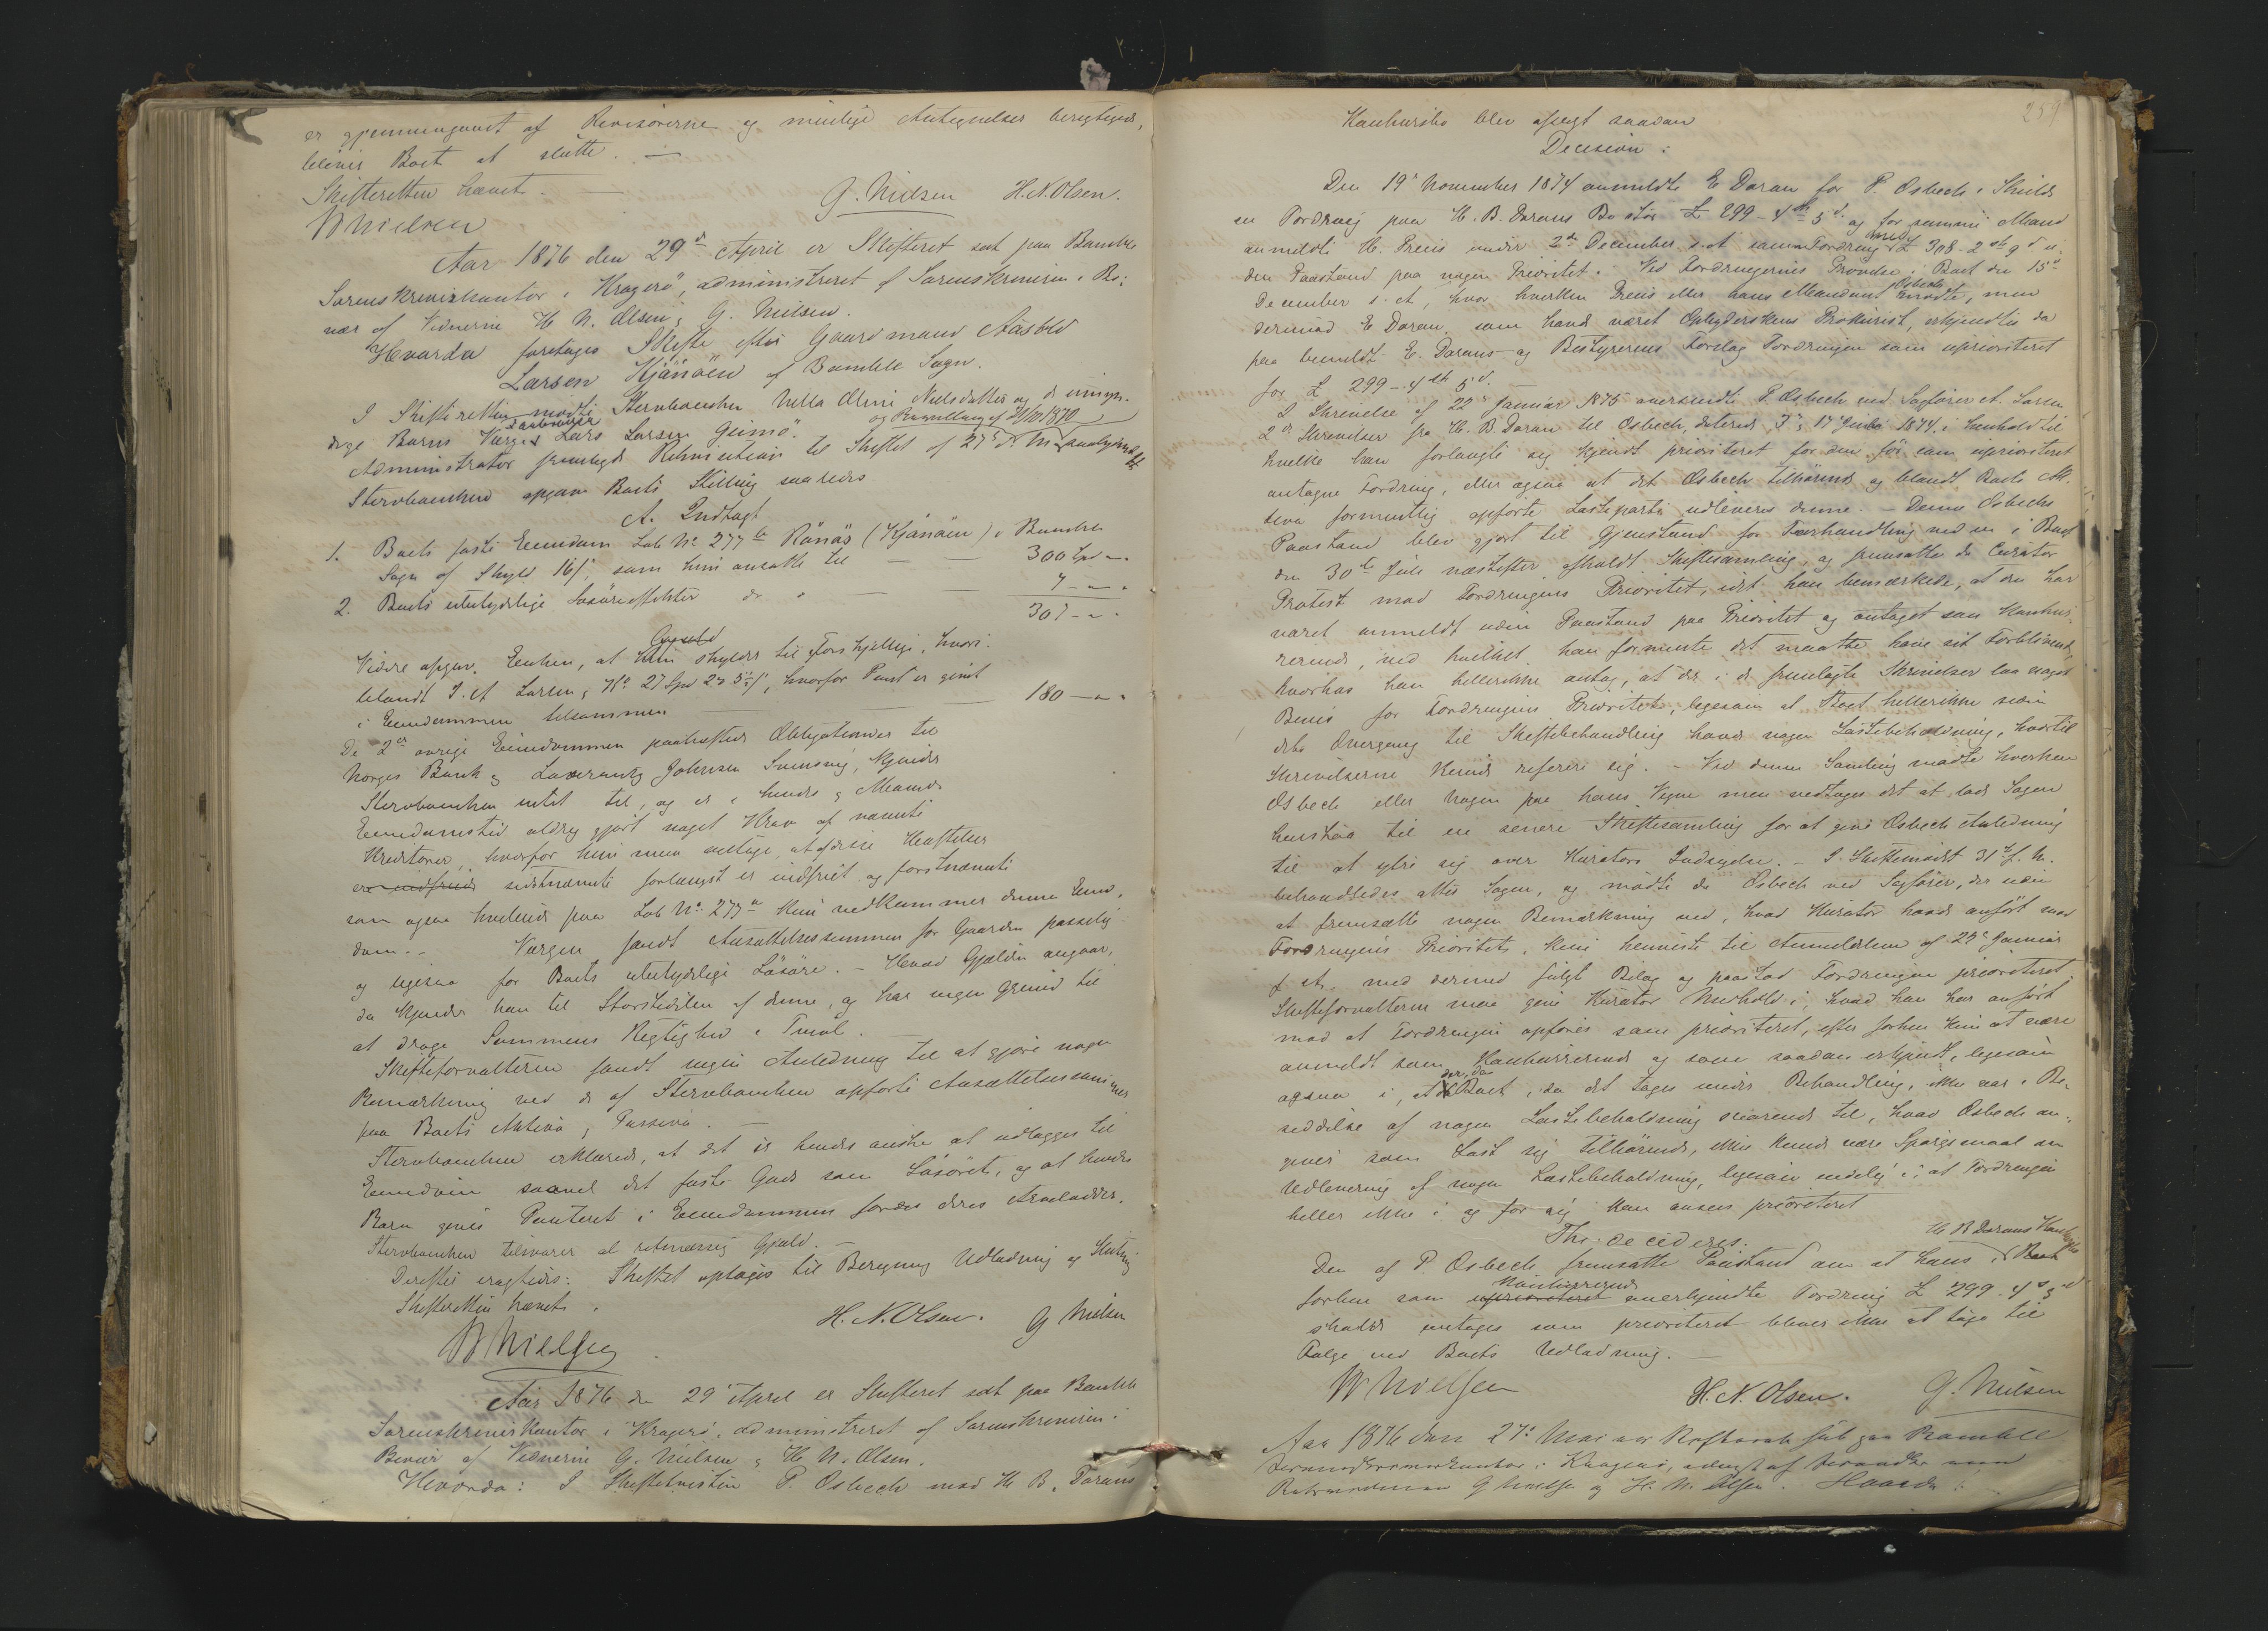 er gjennemgaaet af Revisorerne og mulige Antegnelser berigtigede,
bliver Boet at slutte. —
Skifteretten hævet. —
G. Nielsen H. N. Olsen.
W Nielsen
Aar 1876 den 29de April er Skifteret sat paa Bamble
Sorenskriverkontor i Kragerö, administreret af Sorenskriveren i Be-
vær af Vidnerne H. N. Olsen & G. Nielsen.
Hvorda foretages Skifte efter Gaardmand Aasold
Larsen Kjönöen af Bamble Sogn.
I Skifteretten mødte Stervboenken Nella Oline Nielsdatter og de umyn-
dige Børns Værge Farbroder Lars Larsen Geimö.
Administrator fremlagde Rekvisition til Skiftet af 27de ds og Bevilling af
Stervboenken opgav Boets Stilling saaledes
A. Indtægt
1. Boets faste Eiendom Løb No 277 b Rönös (Kjönöen) i Bamble
Sogn af Skyld 16 ß, som hun ansatte til — 300 Spd " "
2. Boets ubetydelige Løsøreeffekter do " — 7 - " - "
307 - " "
Videre opgav Enken, at hun Gjæld skylder til forskjellige, hvori-
blandt J. A. Larsen, Ko 27 Spd 2 $ 5½ ß, hvorfor Pant er givet
i Eiendommen tilsammen — 180 — " "
De 2de øvrige Eiendommen paaheftede Obligationer til
Norges Bank & Laurentz Johnsen Svensvig, kjender
Stervboenken intet til, og er i hendes & Mands
Eiendomstid aldrig gjørt noget Krav af nævnte
Kreditorer, hvorfor hun maa antage, at disse Heftelser
er indfriede sidstnævnte forlængst er indfriet og førstnævnte
som ogsaa heftende paa Løb No 277 a kun vedkommer denne Eien-
dom. — Værgen fandt Ansættelsessummen for Gaarden passelig
og ligesaa for Boets ubetydelige Løsøre. — Hvad Gjælden angaar,
da kjender han til Størstedelen af denne, og har ingen Grund til
at drage Summens Rigtighed i Tvivl.
Skifteforvalteren fandt ingen Anledning til at gjøre nogen
Bemærkning ved de af Stervboenken opførte Ansættelsessummer
paa Boets Aktiva & Passiva. —
Stervboenken erklærede, at det er hendes Ønske at udlægges til
Eiendom saavel det faste Gods som Løsøret, og at hendes
Børn gives Panteret i Eiendommen for deres Arvelodder.
Stervboenken tilsvarer al retmæssig Gjæld. —
Derefter eragtedes: Skiftet optages til Beregning Udlodning og Slutning
Skifteretten hævet.
H. N. Olsen. G Nielsen
W Nielsen
Aar 1876 den 29de April er Skifteret sat paa Bamble
Sorenskriverkontor i Kragerö, administreret af Sorenskriveren i
Bevær af Vidnerne G. Nielsen & H. N. Olsen.
Hvorda: I Skiftetvisten P. Osbech mod H. B. Dorans
259
Konkursbo blev afsagt saadan
Decision:
Den 19de November 1874 anmeldte E Doran for P. Osbech i Shields
en Fordring paa H. B. Dorans Bo stor £ 299 - 4 sh 5 d. og for samme Mand
anmeldte H. Preus under 2den December s. A. samme Fordring med £ 308 - 2 sh 9 d u-
den Paastand paa nogen Prioritet. Ved Fordringernes Prøvelse i Boet den 15de
December s. A., hvor hverken Preus eller hans Mandant Osbech mødte, men
derimod E Doran, som havde været Opbyderskens Prokurist, erkjendtes da
paa bemeldt E. Dorans og Bestyrerens Forslag Fordringen som uprioriteret
for £ 299 - 4 sh 5 d.
I Skrivelse af 22de Januar 1875 oversendte P. Osbech ved Sagfører A. Larsen
2de Skrivelser fra H. B. Doran til Osbech, daterede 7de & 17 Juli 1874, i Henhold til
hvilke han forlangte sig kjendt prioriteret for den før som uprioriteret
antagne Fordring, eller ogsaa at det Osbech tilhørende og blandt Boets Ak-
tiva formentlig opførte Lasteparti udleveres denne. — Denne Osbechs
Paastand blev gjort til Gjenstand for Forhandling ved en i Boet
den 30te Juli næstefter afholdt Skiftesamling, og fremsatte da Curator
Protest mod Fordringens Prioritet, idet han bemærkede, at den har
været anmeldt uden Paastand paa Prioritet og antaget som konkur-
rerende, ved hvilket han formente det maatte have sit Forblivende,
hvorhos han hellerikke antog, at der i de fremlagte Skrivelser laa noget
Bevis for Fordringens Prioritet, ligesom at Boet hellerikke siden
dets Overgang til Skiftebehandling havde nogen Lastebeholdning, hvortil
Skrivelserne kunde referere sig. — Ved denne Samling mødte hverken
Osbech eller Nogen paa hans Vegne men vedtoges det at lade Sagen
henstaa til en senere Skiftesamling for at give Osbech Anledning
til at ytre sig over Kurators Indsigelse. — I Skiftemødet 31te f. M.
behandledes atter Sagen, og mødte da Osbech ved Sagfører, der uden
at fremsætte nogen Bemærkning ved, hvad Kurator havde anført mod
Fordringens Prioritet, kun henviste til Anmeldelsen af 22de Januar
f. A. med dermed fulgt Bilag og paastod Fordringen prioriteret.
Skifteforvalteren maa give Kurator Medhold i, hvad han har anført
mod at Fordringen opføres som prioriteret, efter forhen kun at være
anmeldt som konkurrerende og som saadan erkjendt, ligesom
ogsaa i, at der, da Boet, da det toges under Behandling, ikke var i Be-
siddelse af nogen Lastebeholdning svarende til, hvad Osbech an-
giver som Last sig tilhørende, ikke kunde være Spørgsmaal om
Udlevering af nogen Lastebeholdning, ligesom endelig i, at Fordringen
heller ikke i og for sig kan ansees prioriteret
Thi decideres:
Den af P. Osbech fremsatte Paastand om at hans i H. B Dorans Konkursbo
forhen som uprioriteret konkurrerende anerkjendte Fordring £ 299 - 4 s 5 d
skulde antages som prioriteret bliver ikke at tage til
Følge ved Boets Udlodning. —
W Nielsen H. N. Olsen. G. Nielsen
Aar 1876 den 27de Mai var Skifteret sat paa Bamble
Sorenskriverkontor i Kragerø,
G Nielsen og H. N. Olsen. Hvorda: